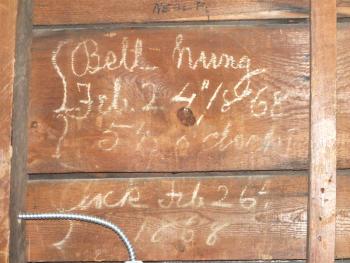 Bell hung
Feb. 2 4" 18"68
5½ o'clock
Clock Feb 26"
1868